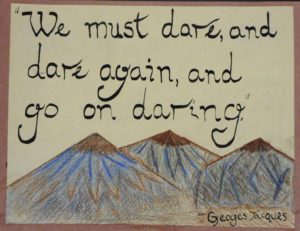 "We must dare, and
dare again, and
go on daring."
~ Georges Jacques